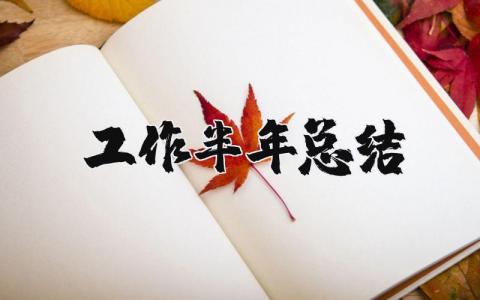 工作半年总结